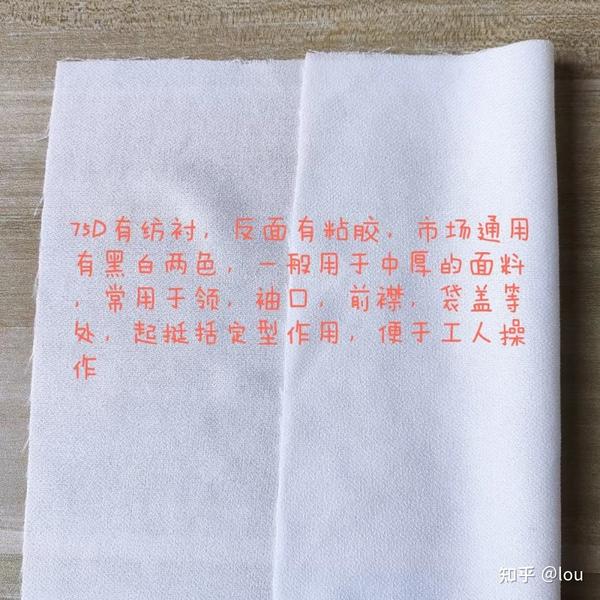 75D有纺衬，反面有粘胶，市场通用
有黑白两色，一般用于中厚的面料
，常用于领，袖口，前襟，袋盖等
处，起挺括定型作用，便于工人操
作
知乎 @lou